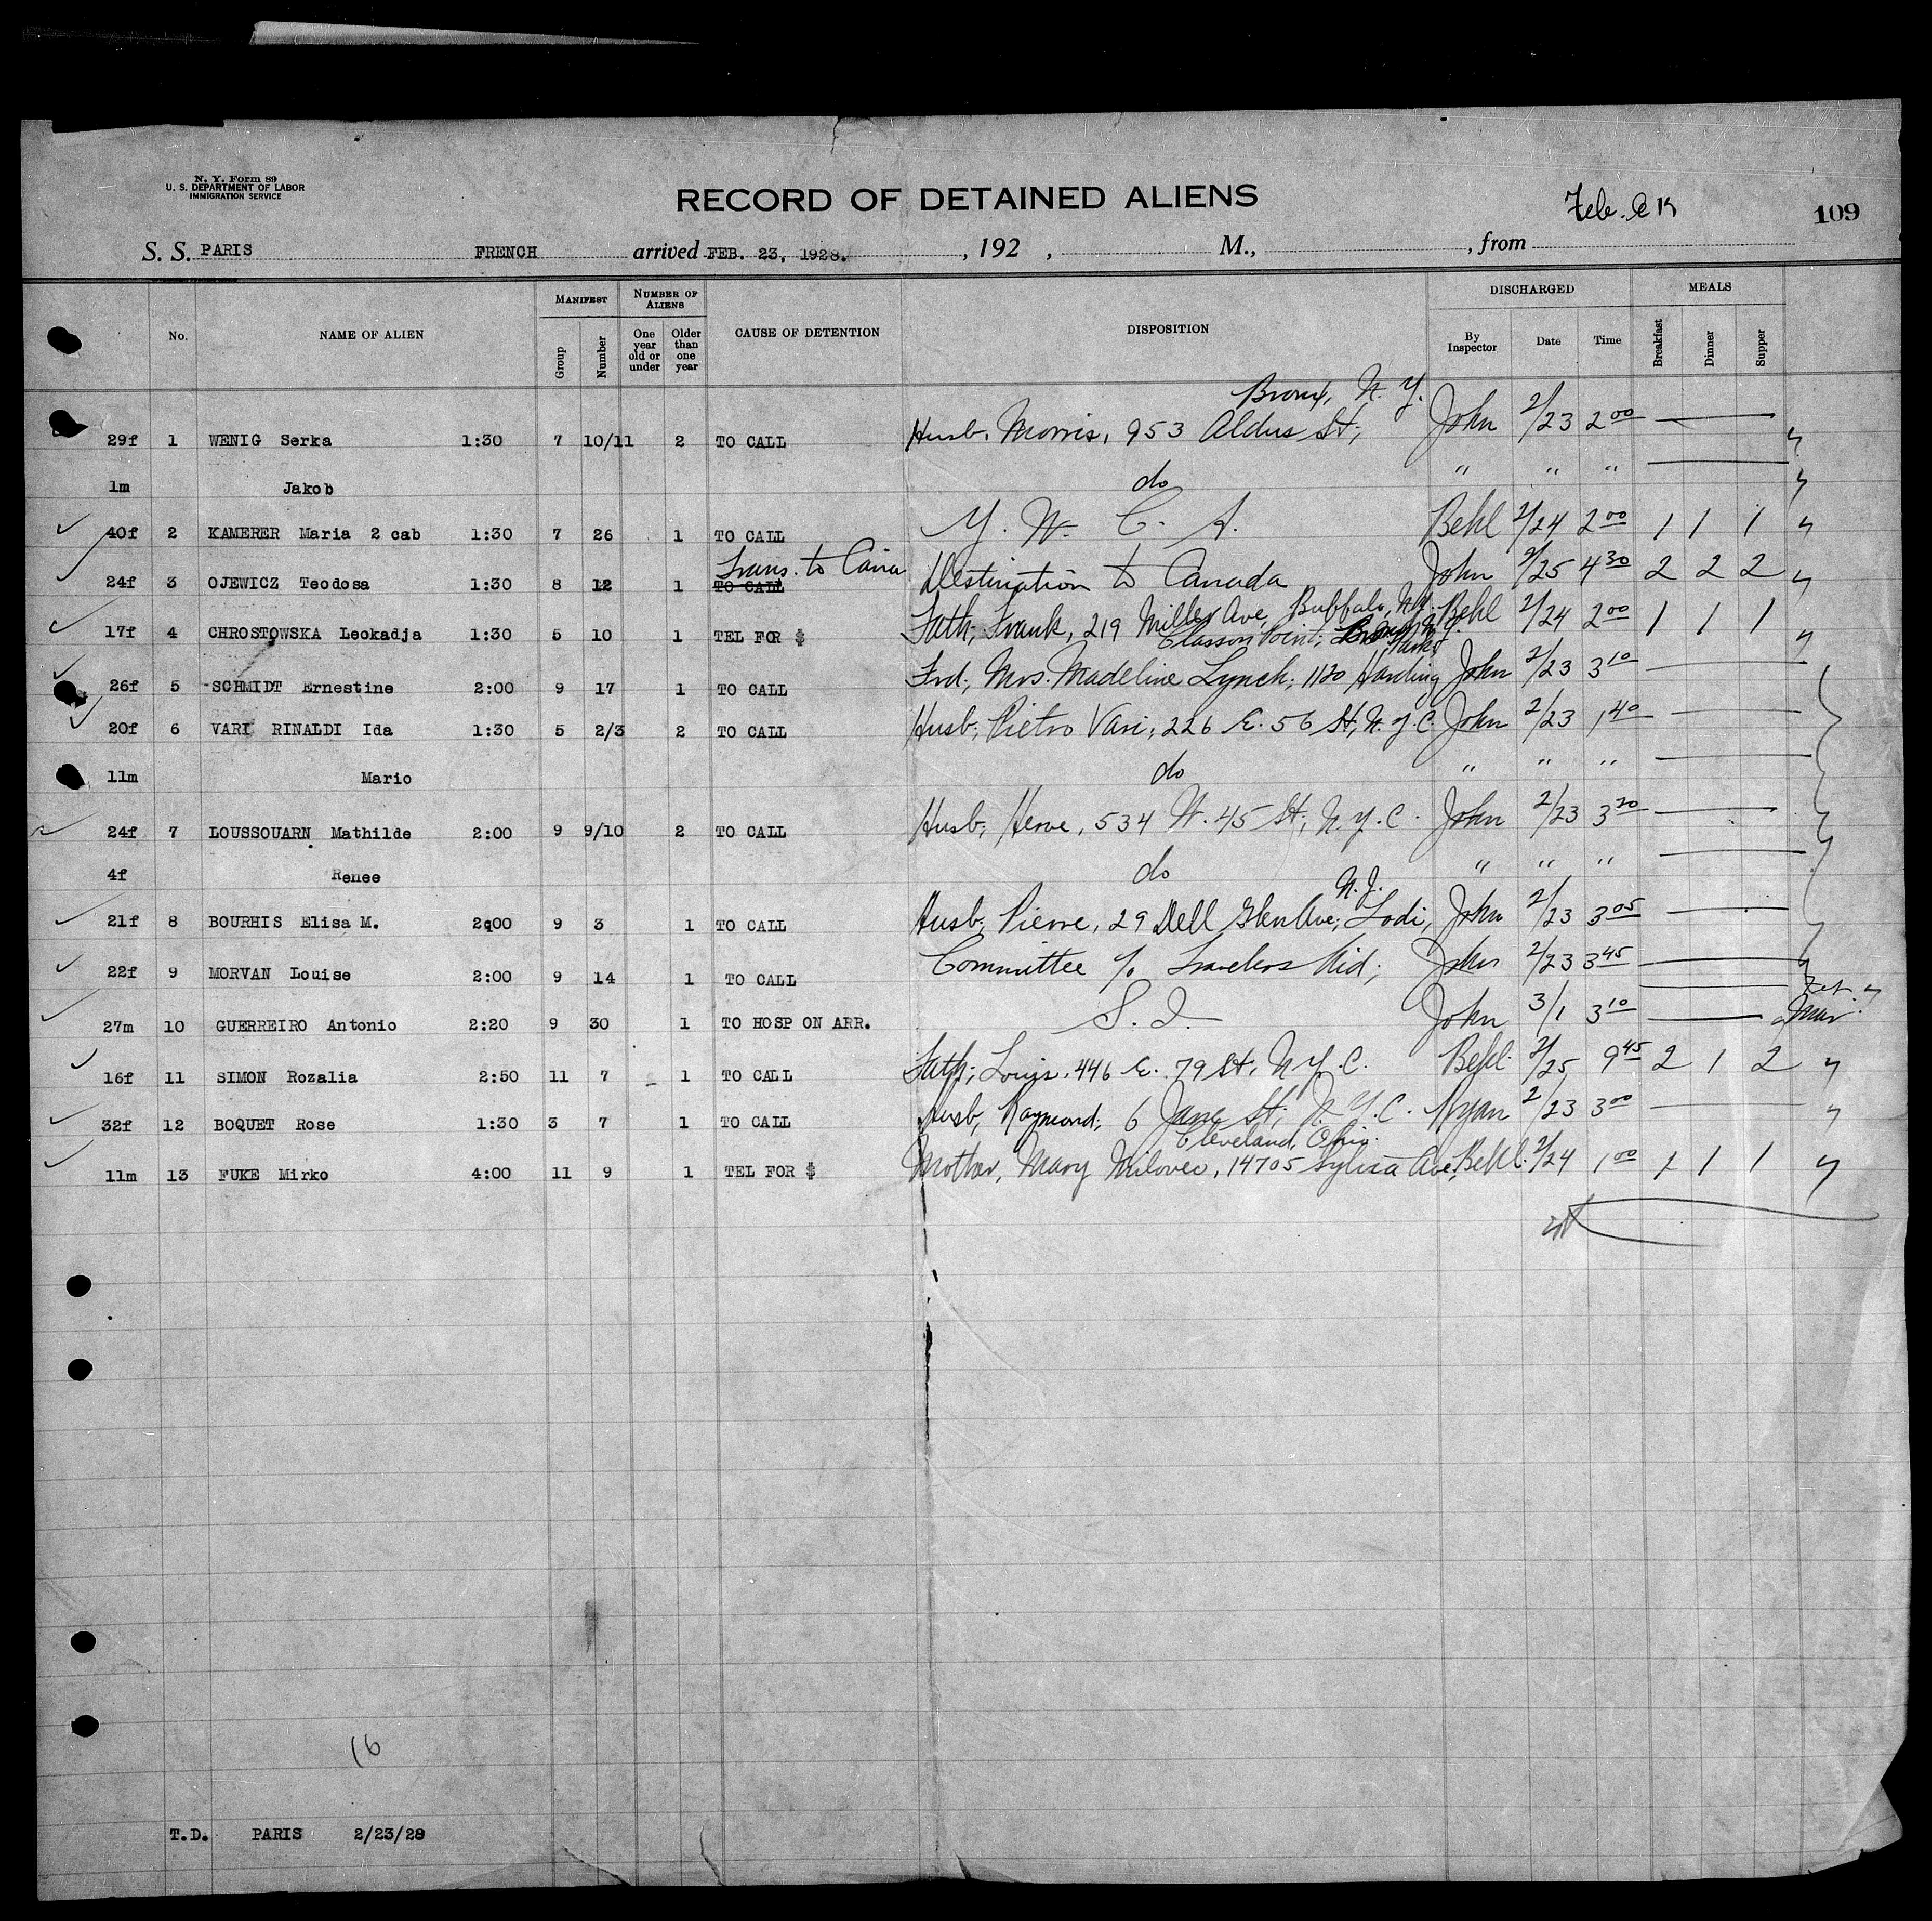 N. Y. Form 89
U. S. DEPARTMENT OF LABOR
IMMIGRATION SERVICE
RECORD OF DETAINED ALIENS
Feb. 109
S. S. PARIS FRENCH arrived FEB. 23, 1928. , 192 , M., , from
No. NAME OF ALIEN MANIFEST Group Number NUMBER OF ALIENS One year old or under Older than one year CAUSE OF DETENTION DISPOSITION DISCHARGED By Inspector Date Time MEALS Breakfast Dinner Supper
Bronx, N. Y.
29f 1 WENIG Serka 1:30 7 10/11 2 TO CALL Husb. Morris, 953 Aldus St; John 2/23 2 00
1m Jakob do " " "
40f 2 KAMERER Maria 2 cab 1:30 7 26 1 TO CALL Y. W. C. A. Behl 2/24 2 00 1 1 1
Trans. to Cana
24f 3 OJEWICZ Teodosa 1:30 8 12 1 TO CALL Destination to Canada John 2/25 4 30 2 2 2
17f 4 CHROSTOWSKA Leokadja 1:30 5 10 1 TEL FOR $ Fath; Frank, 219 Miller Ave, Buffalo, N.Y. Behl 2/24 2 00 1 1 1
Classon Point;
26f 5 SCHMIDT Ernestine 2:00 9 17 1 TO CALL Frd; Mrs. Madeline Lynch; 1120 Harding John 2/23 3 10
20f 6 VARI RINALDI Ida 1:30 5 2/3 2 TO CALL Husb; Pietro Vari, 226 E. 56 St, N.Y.C. John 2/23 1 40
11m Mario do " " "
24f 7 LOUSSOUARN Mathilde 2:00 9 9/10 2 TO CALL Husb; Herve, 534 W. 45 St; N.Y.C. John 2/23 3 20
4f Renee do " " "
N.J.
21f 8 BOURHIS Elisa M. 2:00 9 3 1 TO CALL Husb; Pierre, 29 Dell Glen Ave; Lodi, John 2/23 3 05
22f 9 MORVAN Louise 2:00 9 14 1 TO CALL Committee % Travelers Aid; John 2/23 3 45
27m 10 GUERREIRO Antonio 2:20 9 30 1 TO HOSP ON ARR. S. I. John 3/1 3 10 Mar.
16f 11 SIMON Rozalia 2:50 11 7 1 TO CALL Fath; Louis, 446 E. 79 St, N.Y.C. Behl 2/25 9 45 2 1 2
32f 12 BOQUET Rose 1:30 3 7 1 TO CALL Husb, Raymond; 6 Jane St; N.Y.C. Ryan 2/23 3 00
Cleveland, Ohio.
11m 13 FUKE Mirko 4:00 11 9 1 TEL FOR $ Mother, Mary Milovec, 14705 Sylvia Ave, Behl 2/24 1 00 1 1 1
16
T.D. PARIS 2/23/28